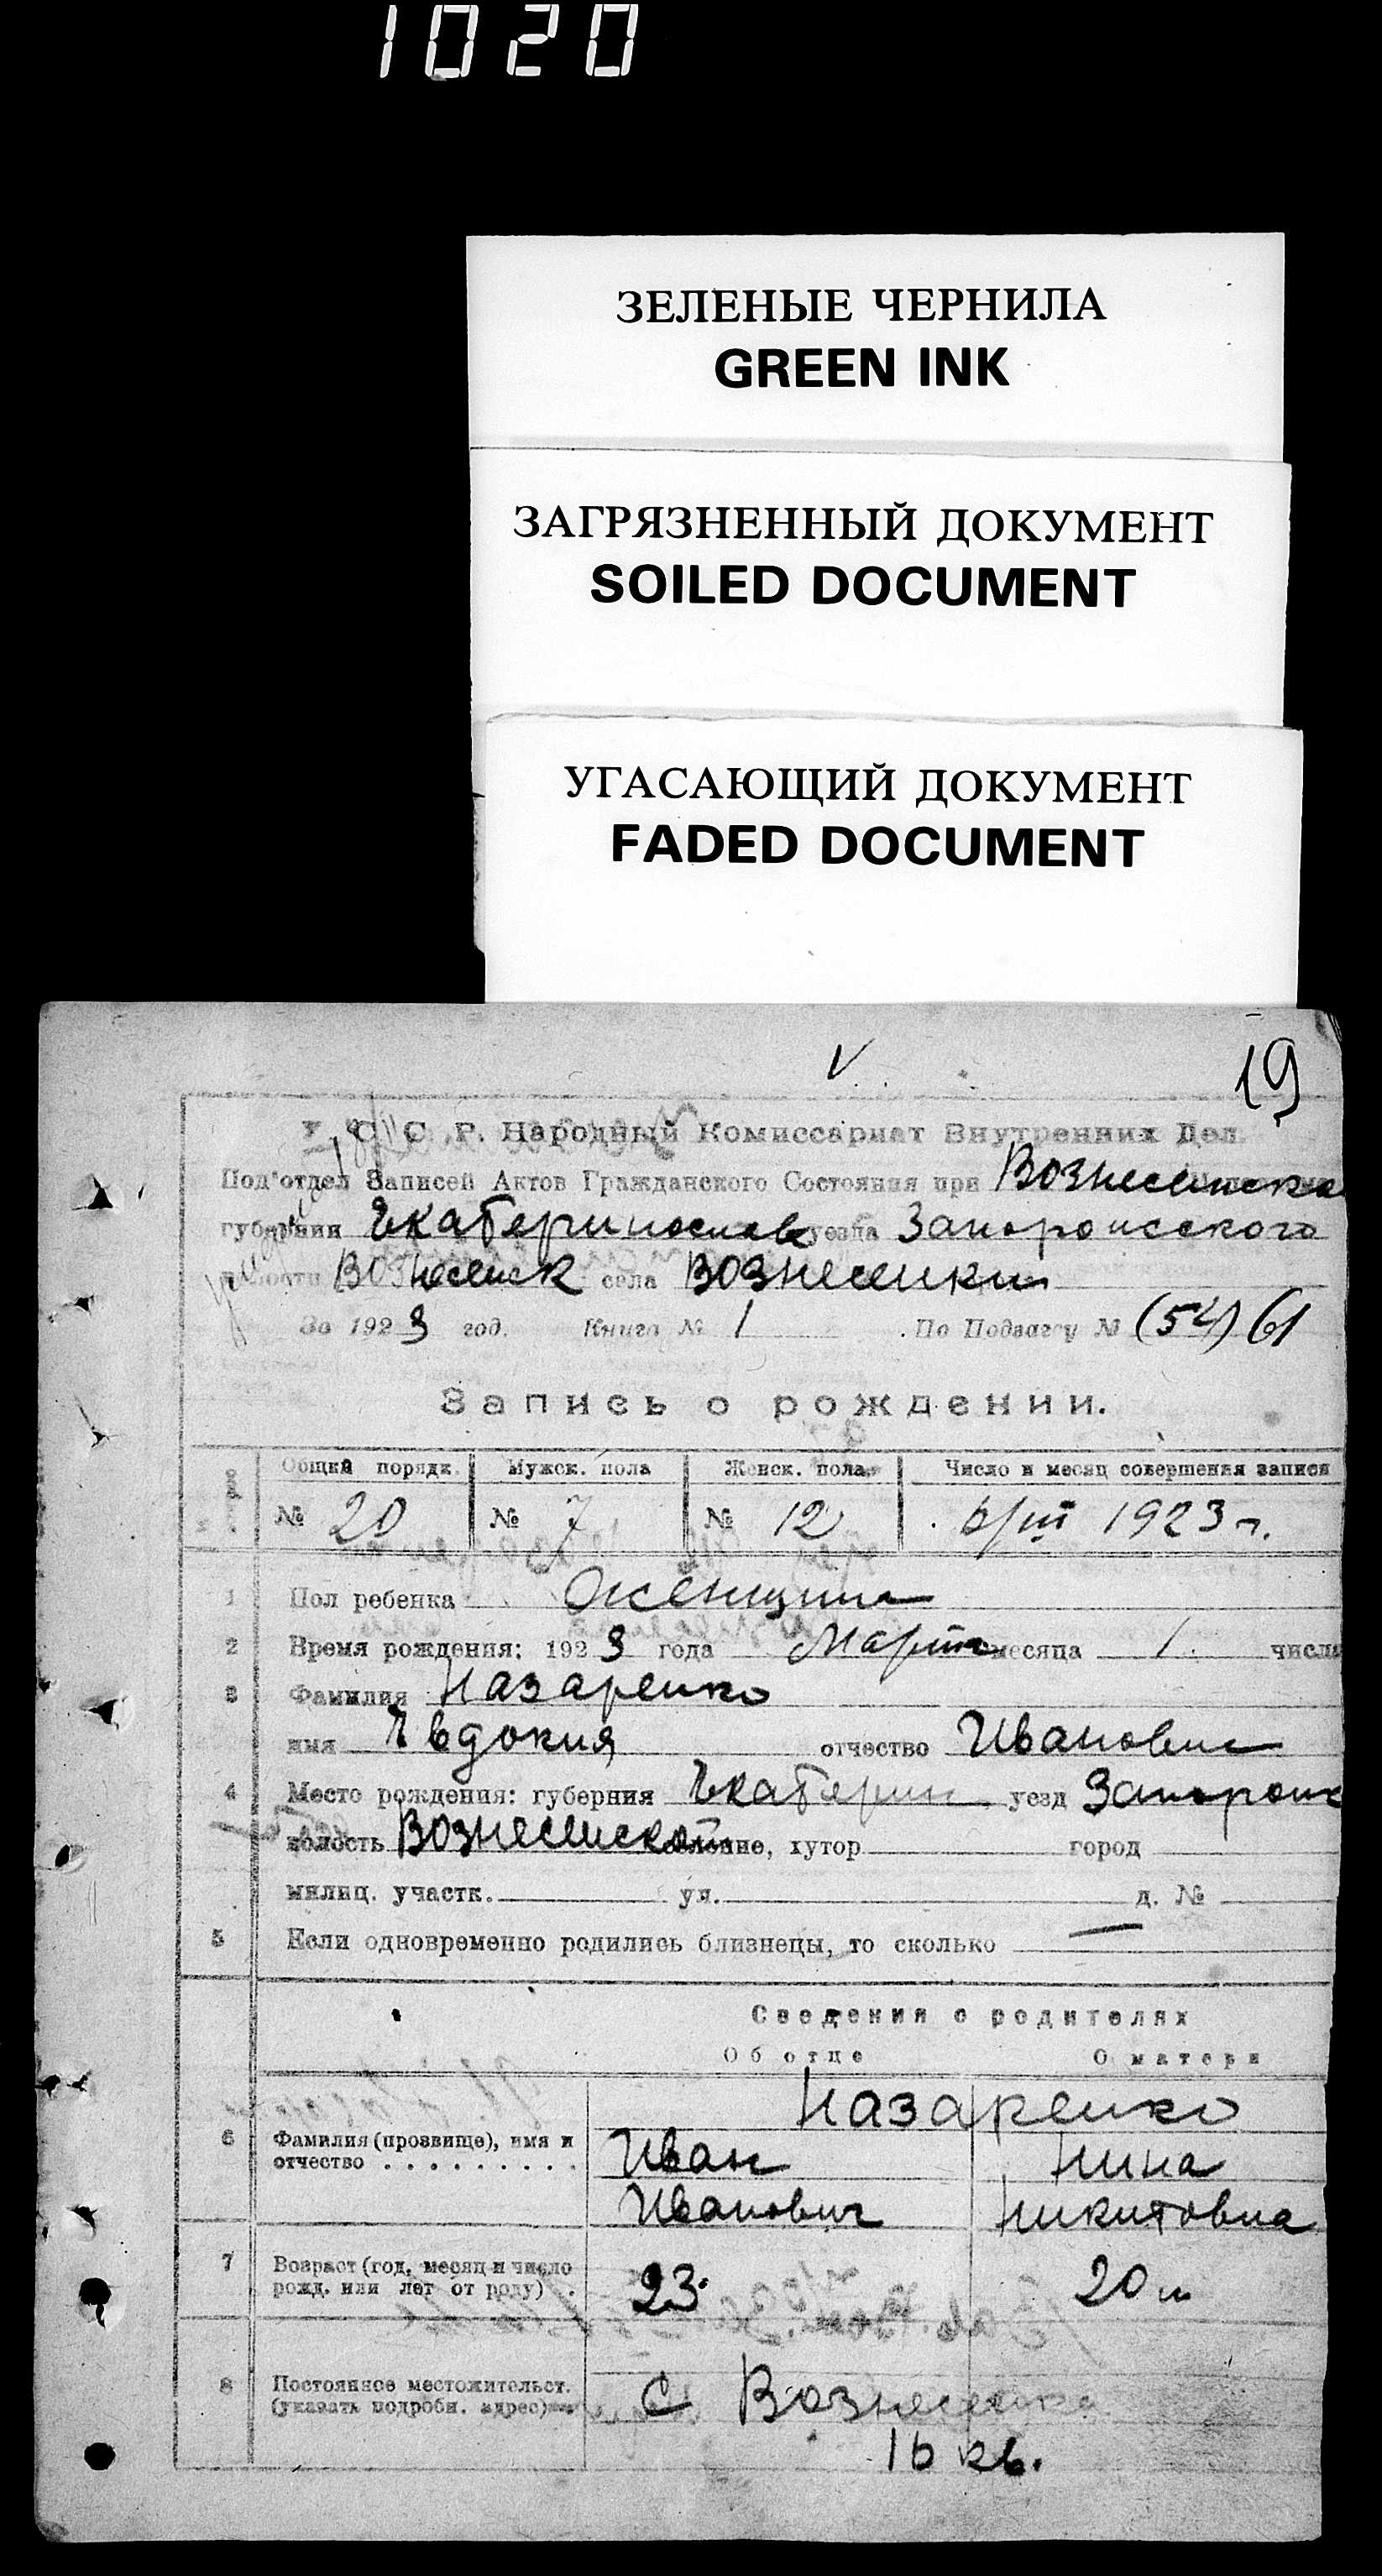 1020
ЗЕЛЕНЫЕ ЧЕРНИЛА
GREEN INK
ЗАГРЯЗНЕННЫЙ ДОКУМЕНТ
SOILED DOCUMENT
УГАСАЮЩИЙ ДОКУМЕНТ
FADED DOCUMENT
V
19
У. С. С. Р. Народный Комиссариат Внутренних Дел.
Под'отдел Записей Актов Гражданского Состояния при Вознесенско
губернии Екатеринослав уезда Запорожского
волости Вознесенск села Вознесенки
За 1923 год. Книга № 1 По Подзагсу № (54) 61
Запись о рождении.
Общий порядк. Мужск. пола Женск. пола Число и месяц совершения записи
№ 20 № 7 № 12 6/III 1923 г.
1 Пол ребенка Женщина
2 Время рождения: 1923 года Марта месяца 1 числа
3 Фамилия Назаренко
имя Евдокия отчество Ивановна
4 Место рождения: губерния Екатерин уезд Запорож
волость Вознесенской селение, хутор город
милиц. участк. ул. д. №
5 Если одновременно родились близнецы, то сколько —
Сведения о родителях
Об отце О матери
Назаренко
6 Фамилия (прозвище), имя и Иван Нина
отчество . . . . . . . . . Иванович Никитовна
7 Возраст (год, месяц и число 23 20 л
рожд. или лет от роду) .
8 Постоянное местожительст. С Вознесенка
(указать подробн. адрес)
16 кв.